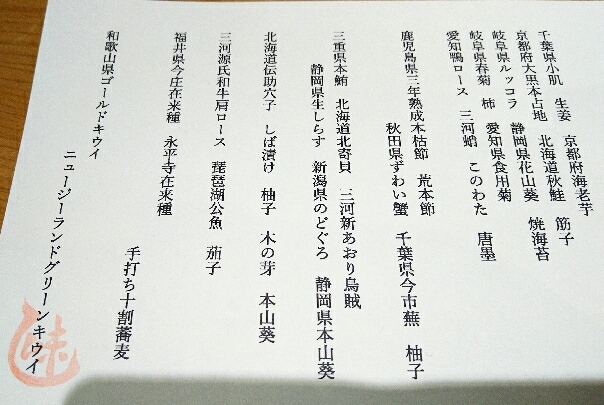 千葉県小肌　生姜　京都府海老芋
京都府大黒本占地　北海道秋鮭　筋子
岐阜県ルッコラ　静岡県花山葵　焼海苔
岐阜県春菊　柿　愛知県食用菊
愛知鴨ロース　三河蛸　このわた　唐墨
鹿児島県三年熟成本枯節　荒本節
秋田県ずわい蟹　千葉県今市蕪　柚子
三重県本鮪　北海道北寄貝　三河新あおり烏賊
静岡県生しらす　新潟県のどぐろ　静岡県本山葵
北海道伝助穴子　しば漬け　柚子　木の芽　本山葵
三河源氏和牛肩ロース　琵琶湖公魚　茄子
福井県今庄在来種　永平寺在来種
手打ち十割蕎麦
和歌山県ゴールドキウイ
ニュージーランドグリーンキウイ